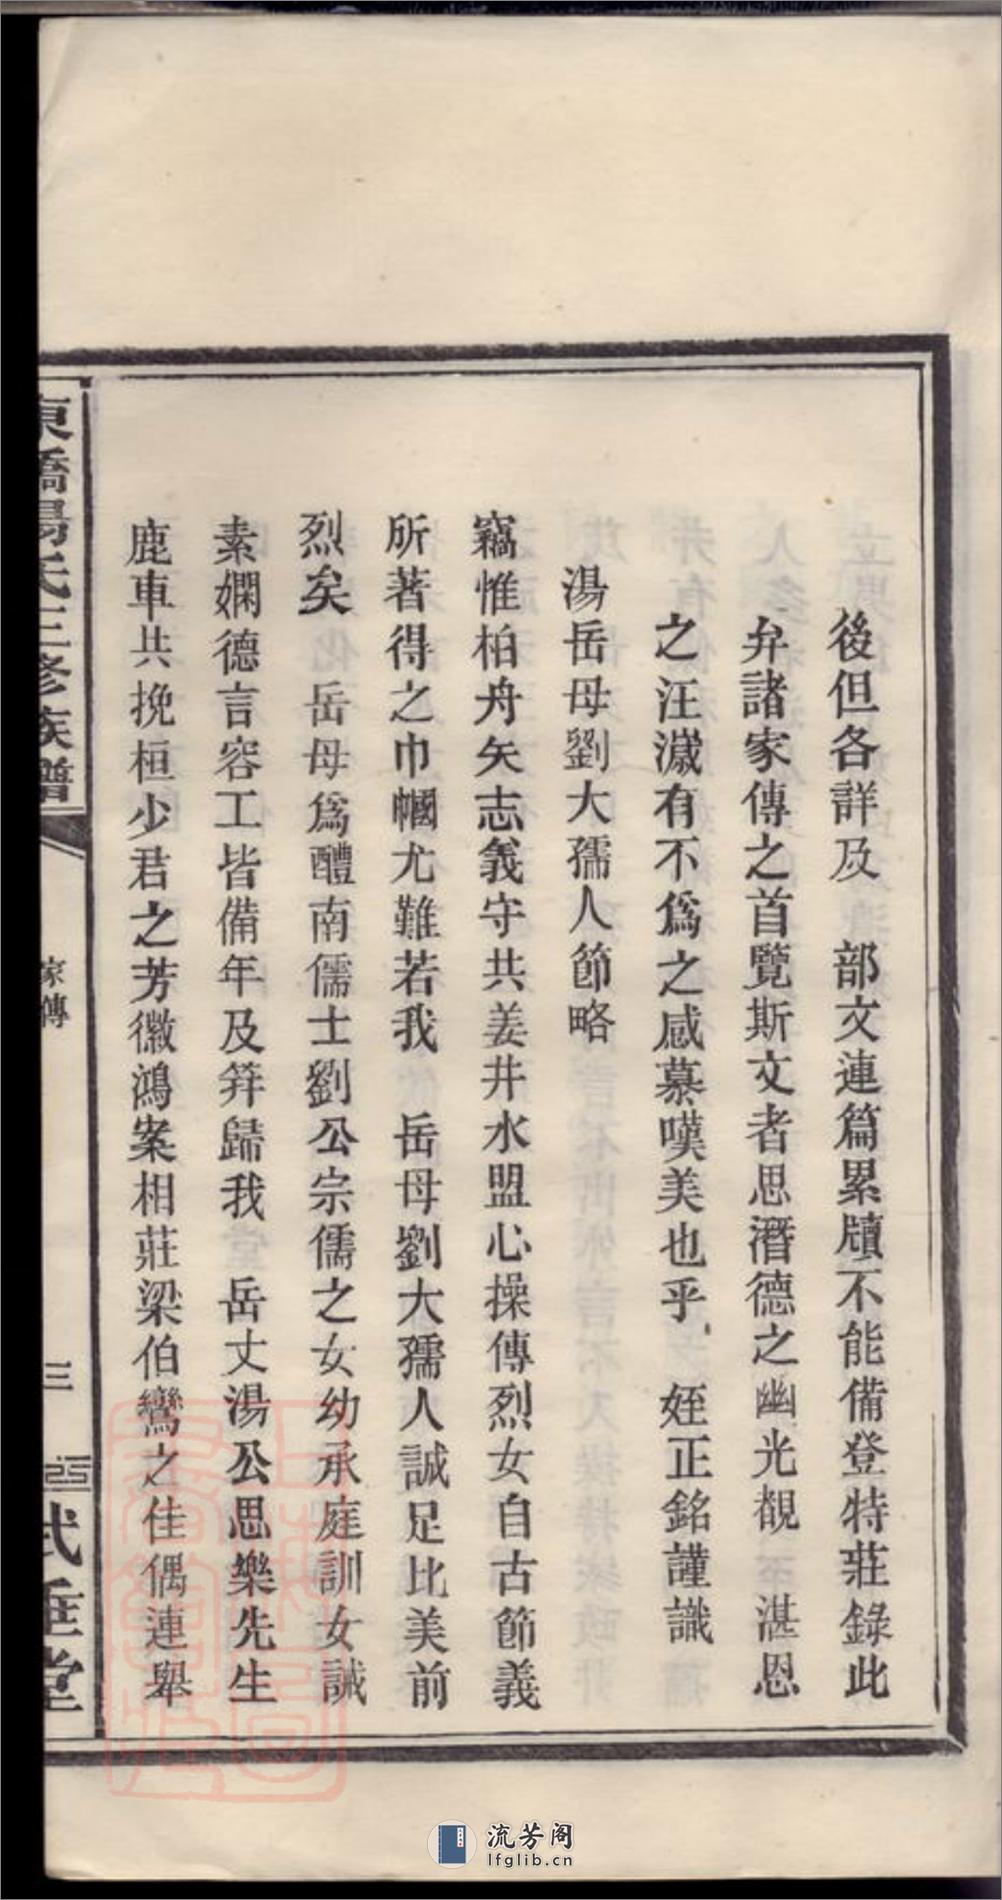 後但各詳及　部文連篇累牘不能備登特莊錄此
弁諸家傳之首覽斯文者思潛德之幽光覩　湛恩
之汪濊有不爲之感慕嘆美也乎　姪正銘謹識
湯岳母劉大孺人節略
竊惟柏舟矢志義守共姜井水盟心操傳烈女自古節義
所著得之巾幗尤難若我　岳母劉大孺人誠足比美前
烈矣　岳母爲醴南儒士劉公宗儒之女幼承庭訓女誡
素嫻德言容工皆備年及筓歸我　岳丈湯公思樂先生
鹿車共挽桓少君之芳徽鴻案相莊梁伯鸞之佳偶連舉
東橋湯氏三修族譜
家傳
三
式垂堂
流芳阁
lfglib.cn